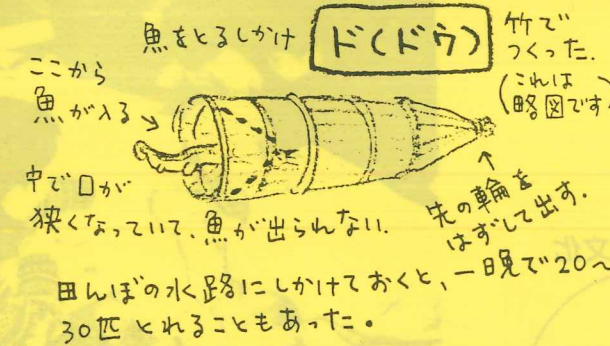 魚をとるしかけ
ド(ドウ)
竹で
つくった.
(これは
略図です)
ここから
魚が入る→
中で口が
狭くなっていて、魚が出られない.
先の輪を
はずして出す.
田んぼの水路にしかけておくと、一晩で20〜
30匹とれることもあった。